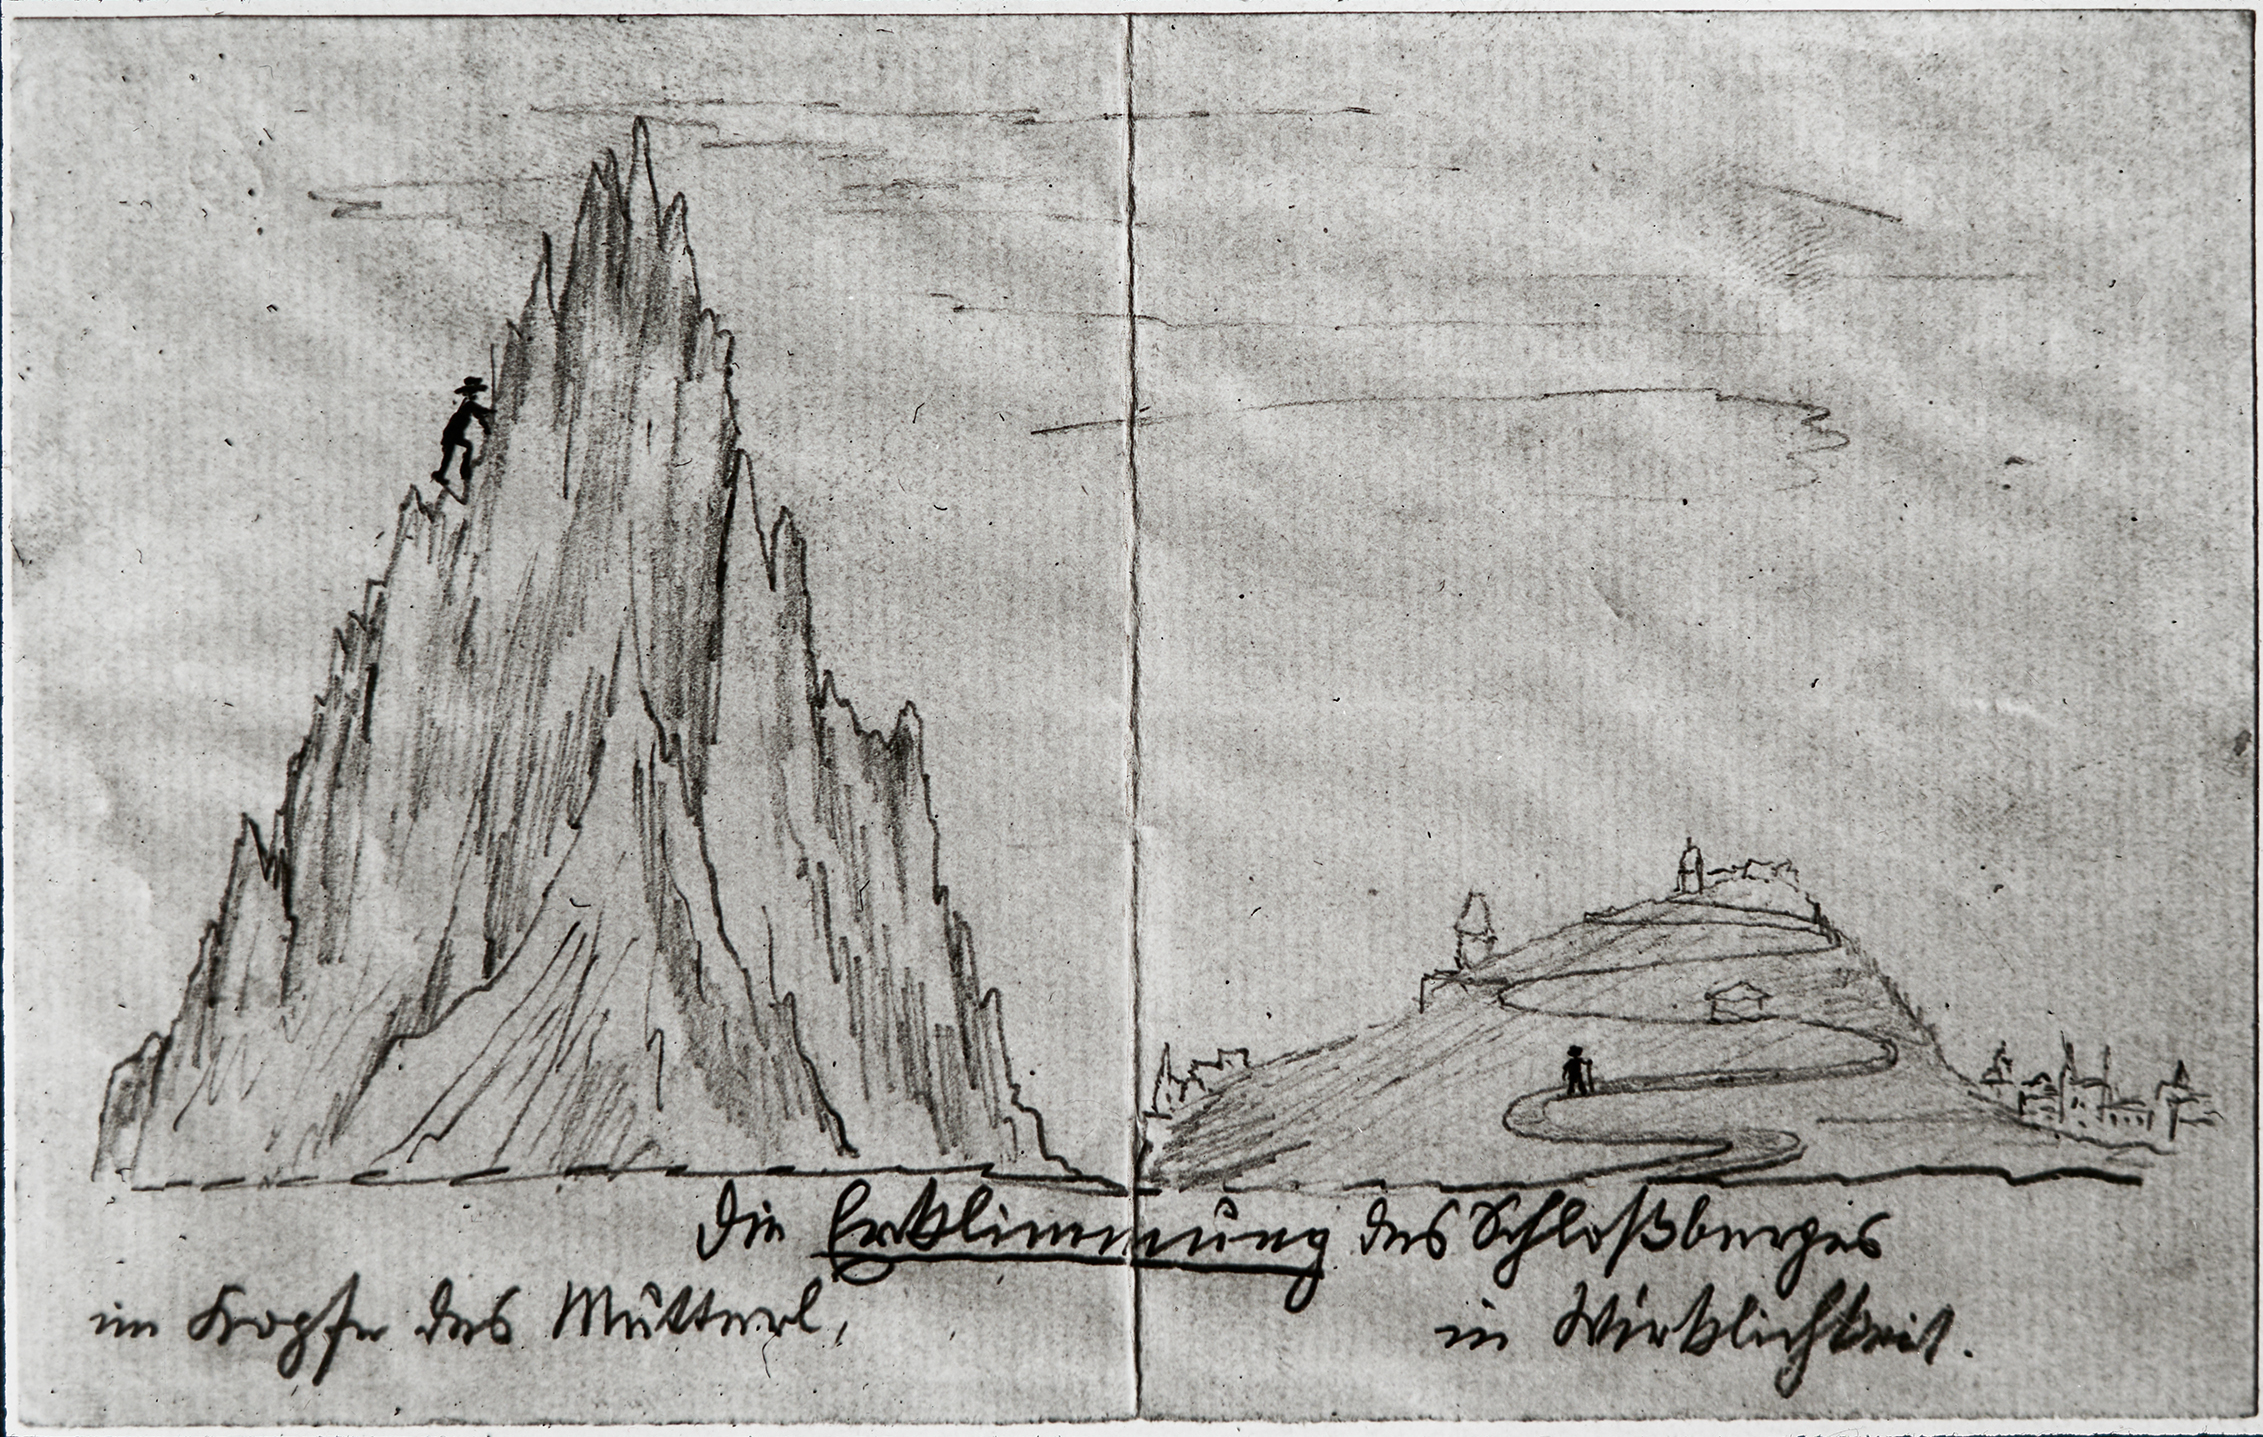 Die Erklimmung des Schloßberges
im Kopfe des Mütterl,
in Wirklichkeit.